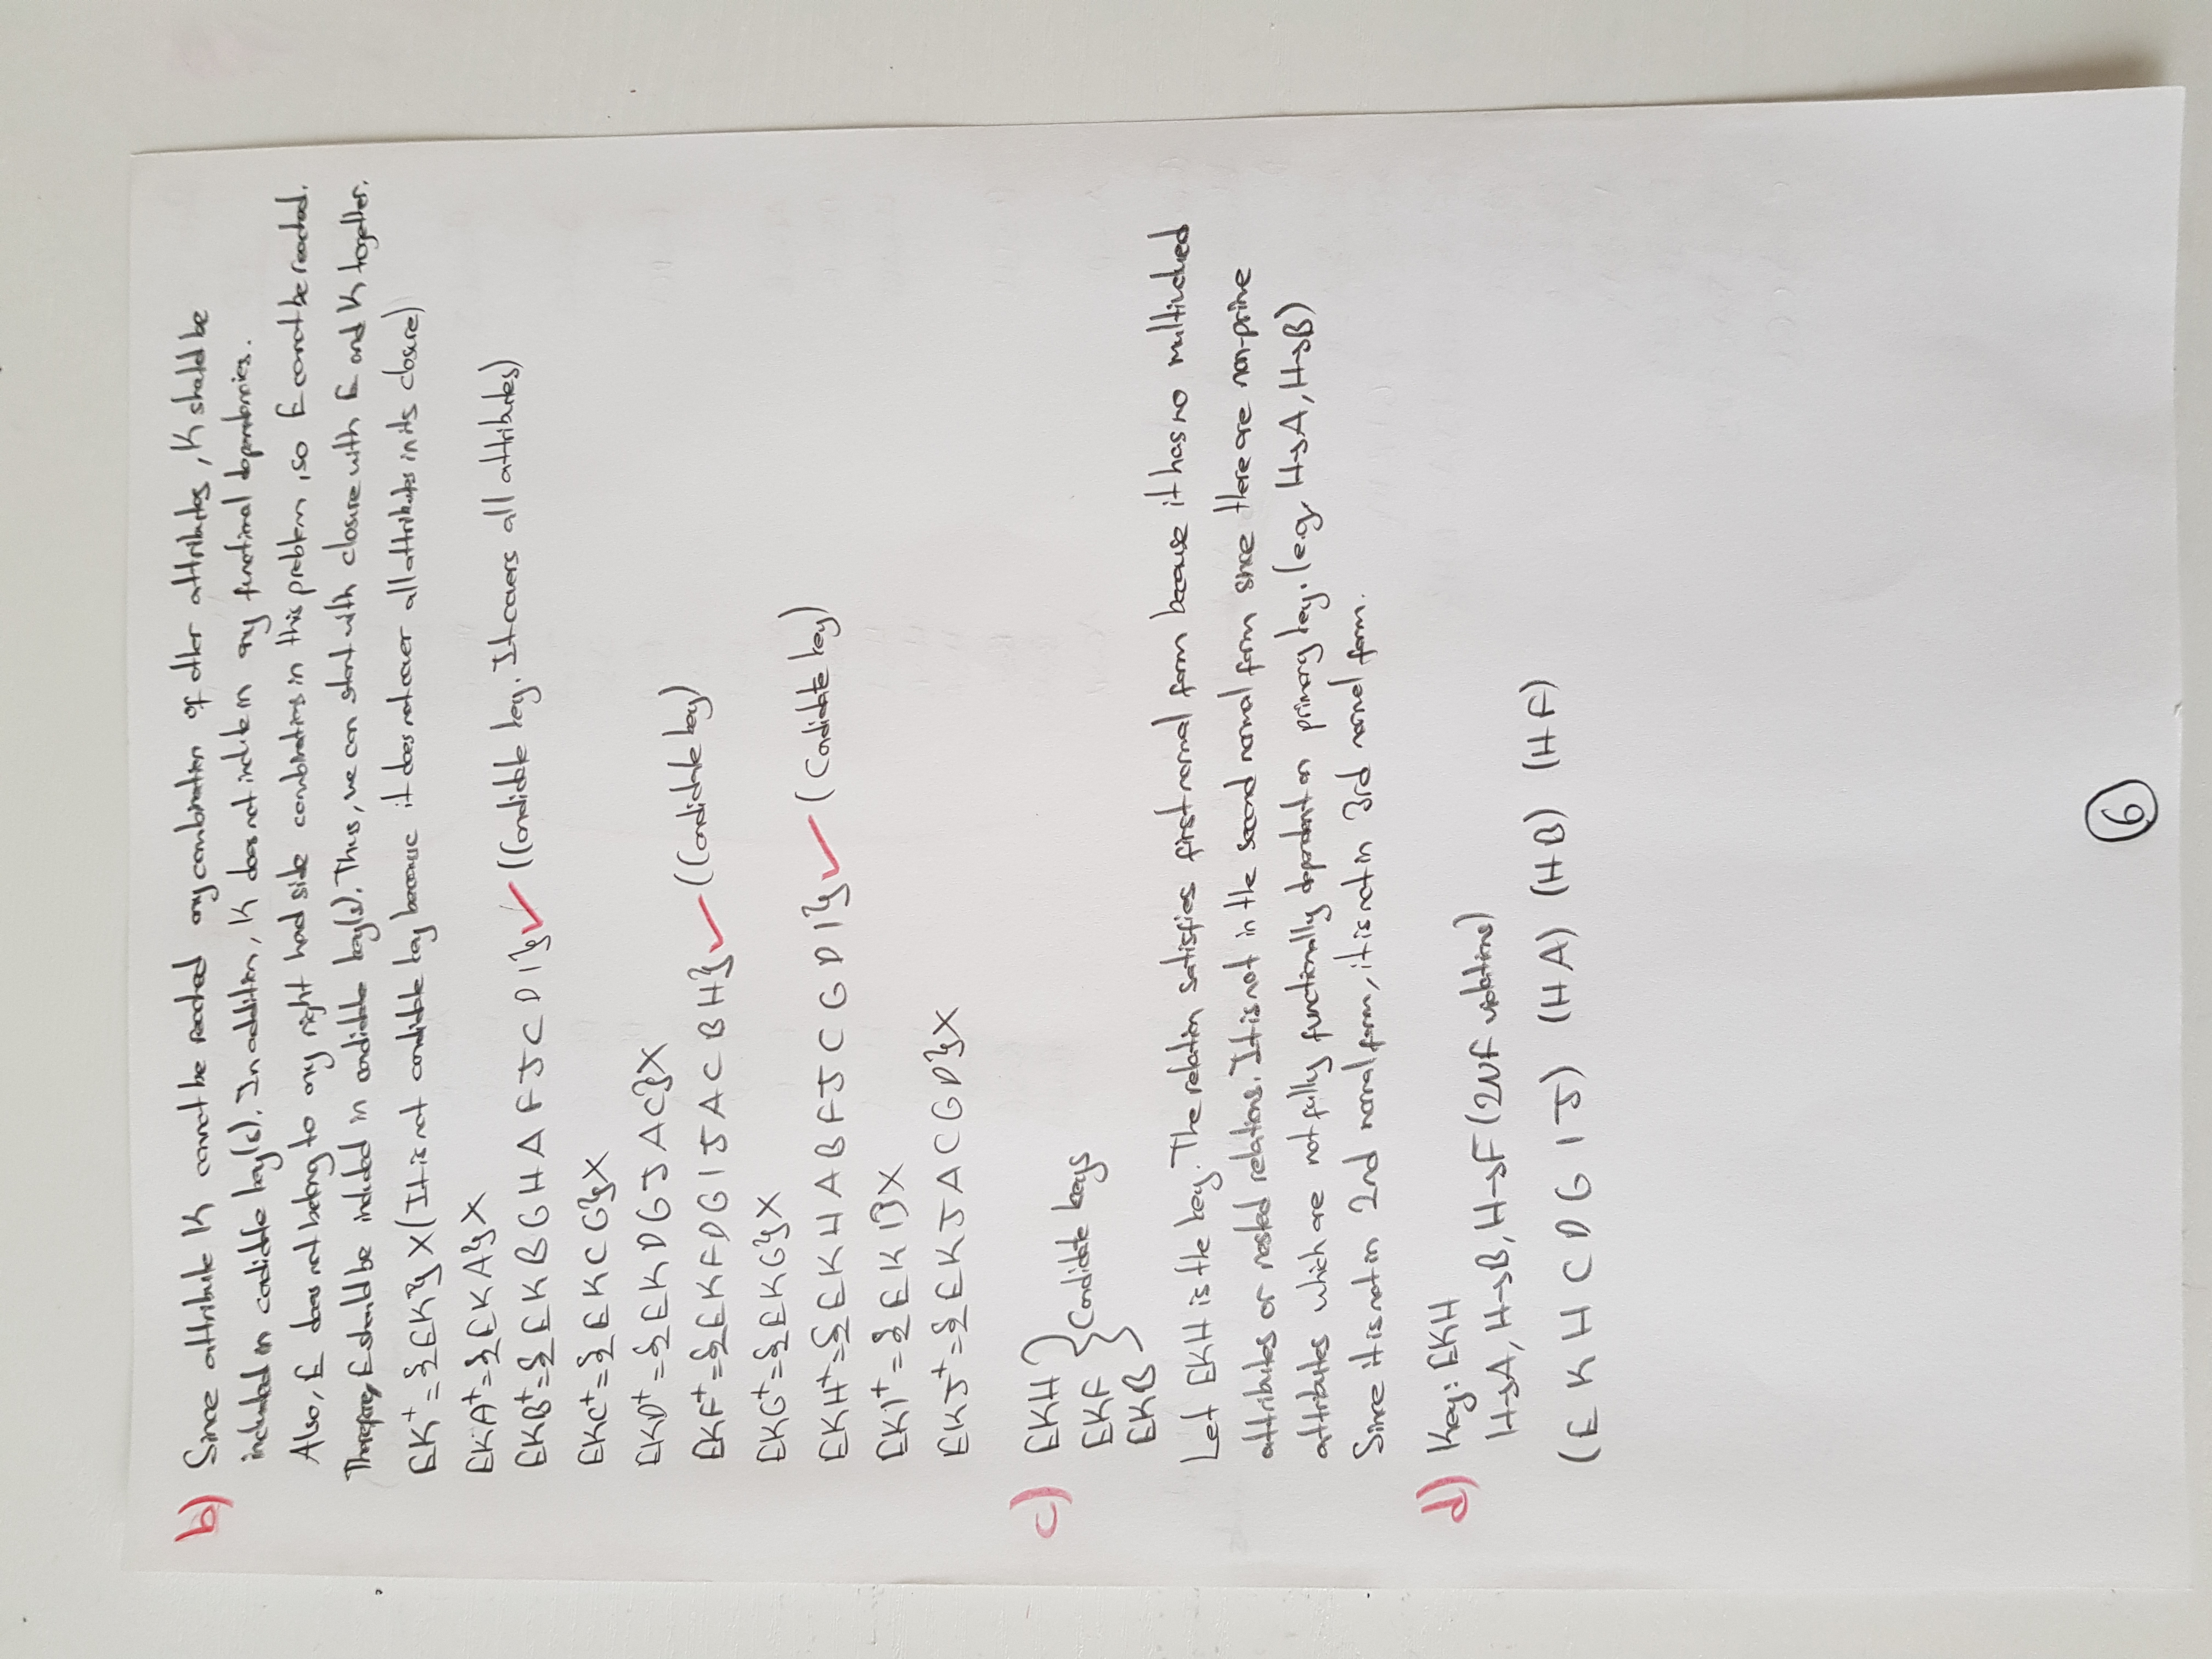 b) Since attribute K cannot be reached any combination of other attributes, K should be
included in candidate key(s). In addition, K does not include in any functional dependencies.
Also, E does not belong to any right hand side combinations in this problem, so E cannot be reached.
Therefore, E should be included in candidate key(s). Thus, we can start with closure with E and K together.
EK⁺={EK} X (It is not candidate key because it does not cover all attributes in its closure)
EKA⁺={EKA} X
EKB⁺={EKBGHAFJCDI} ✓ (Candidate key. It covers all attributes)
EKC⁺={EKCG} X
EKD⁺={EKDGJAC} X
EKF⁺={EKFDGIJACBH} ✓ (Candidate key)
EKG⁺={EKG} X
EKH⁺={EKHABFJCGDI} ✓ (Candidate key)
EKI⁺={EKI} X
EKJ⁺={EKJACGD} X
c) EKH
EKF } Candidate keys
EKB
Let EKH is the key. The relation satisfies first normal form because it has no multivalued
attributes or nested relations. It is not in the second normal form since there are non-prime
attributes which are not fully functionally dependent on primary key. (e.g. H→A, H→B)
Since it is not in 2nd normal form, it is not in 3rd normal form.
d) Key: EKH
H→A, H→B, H→F (2NF violations)
(E K H C D G I J) (H A) (H B) (H F)
6